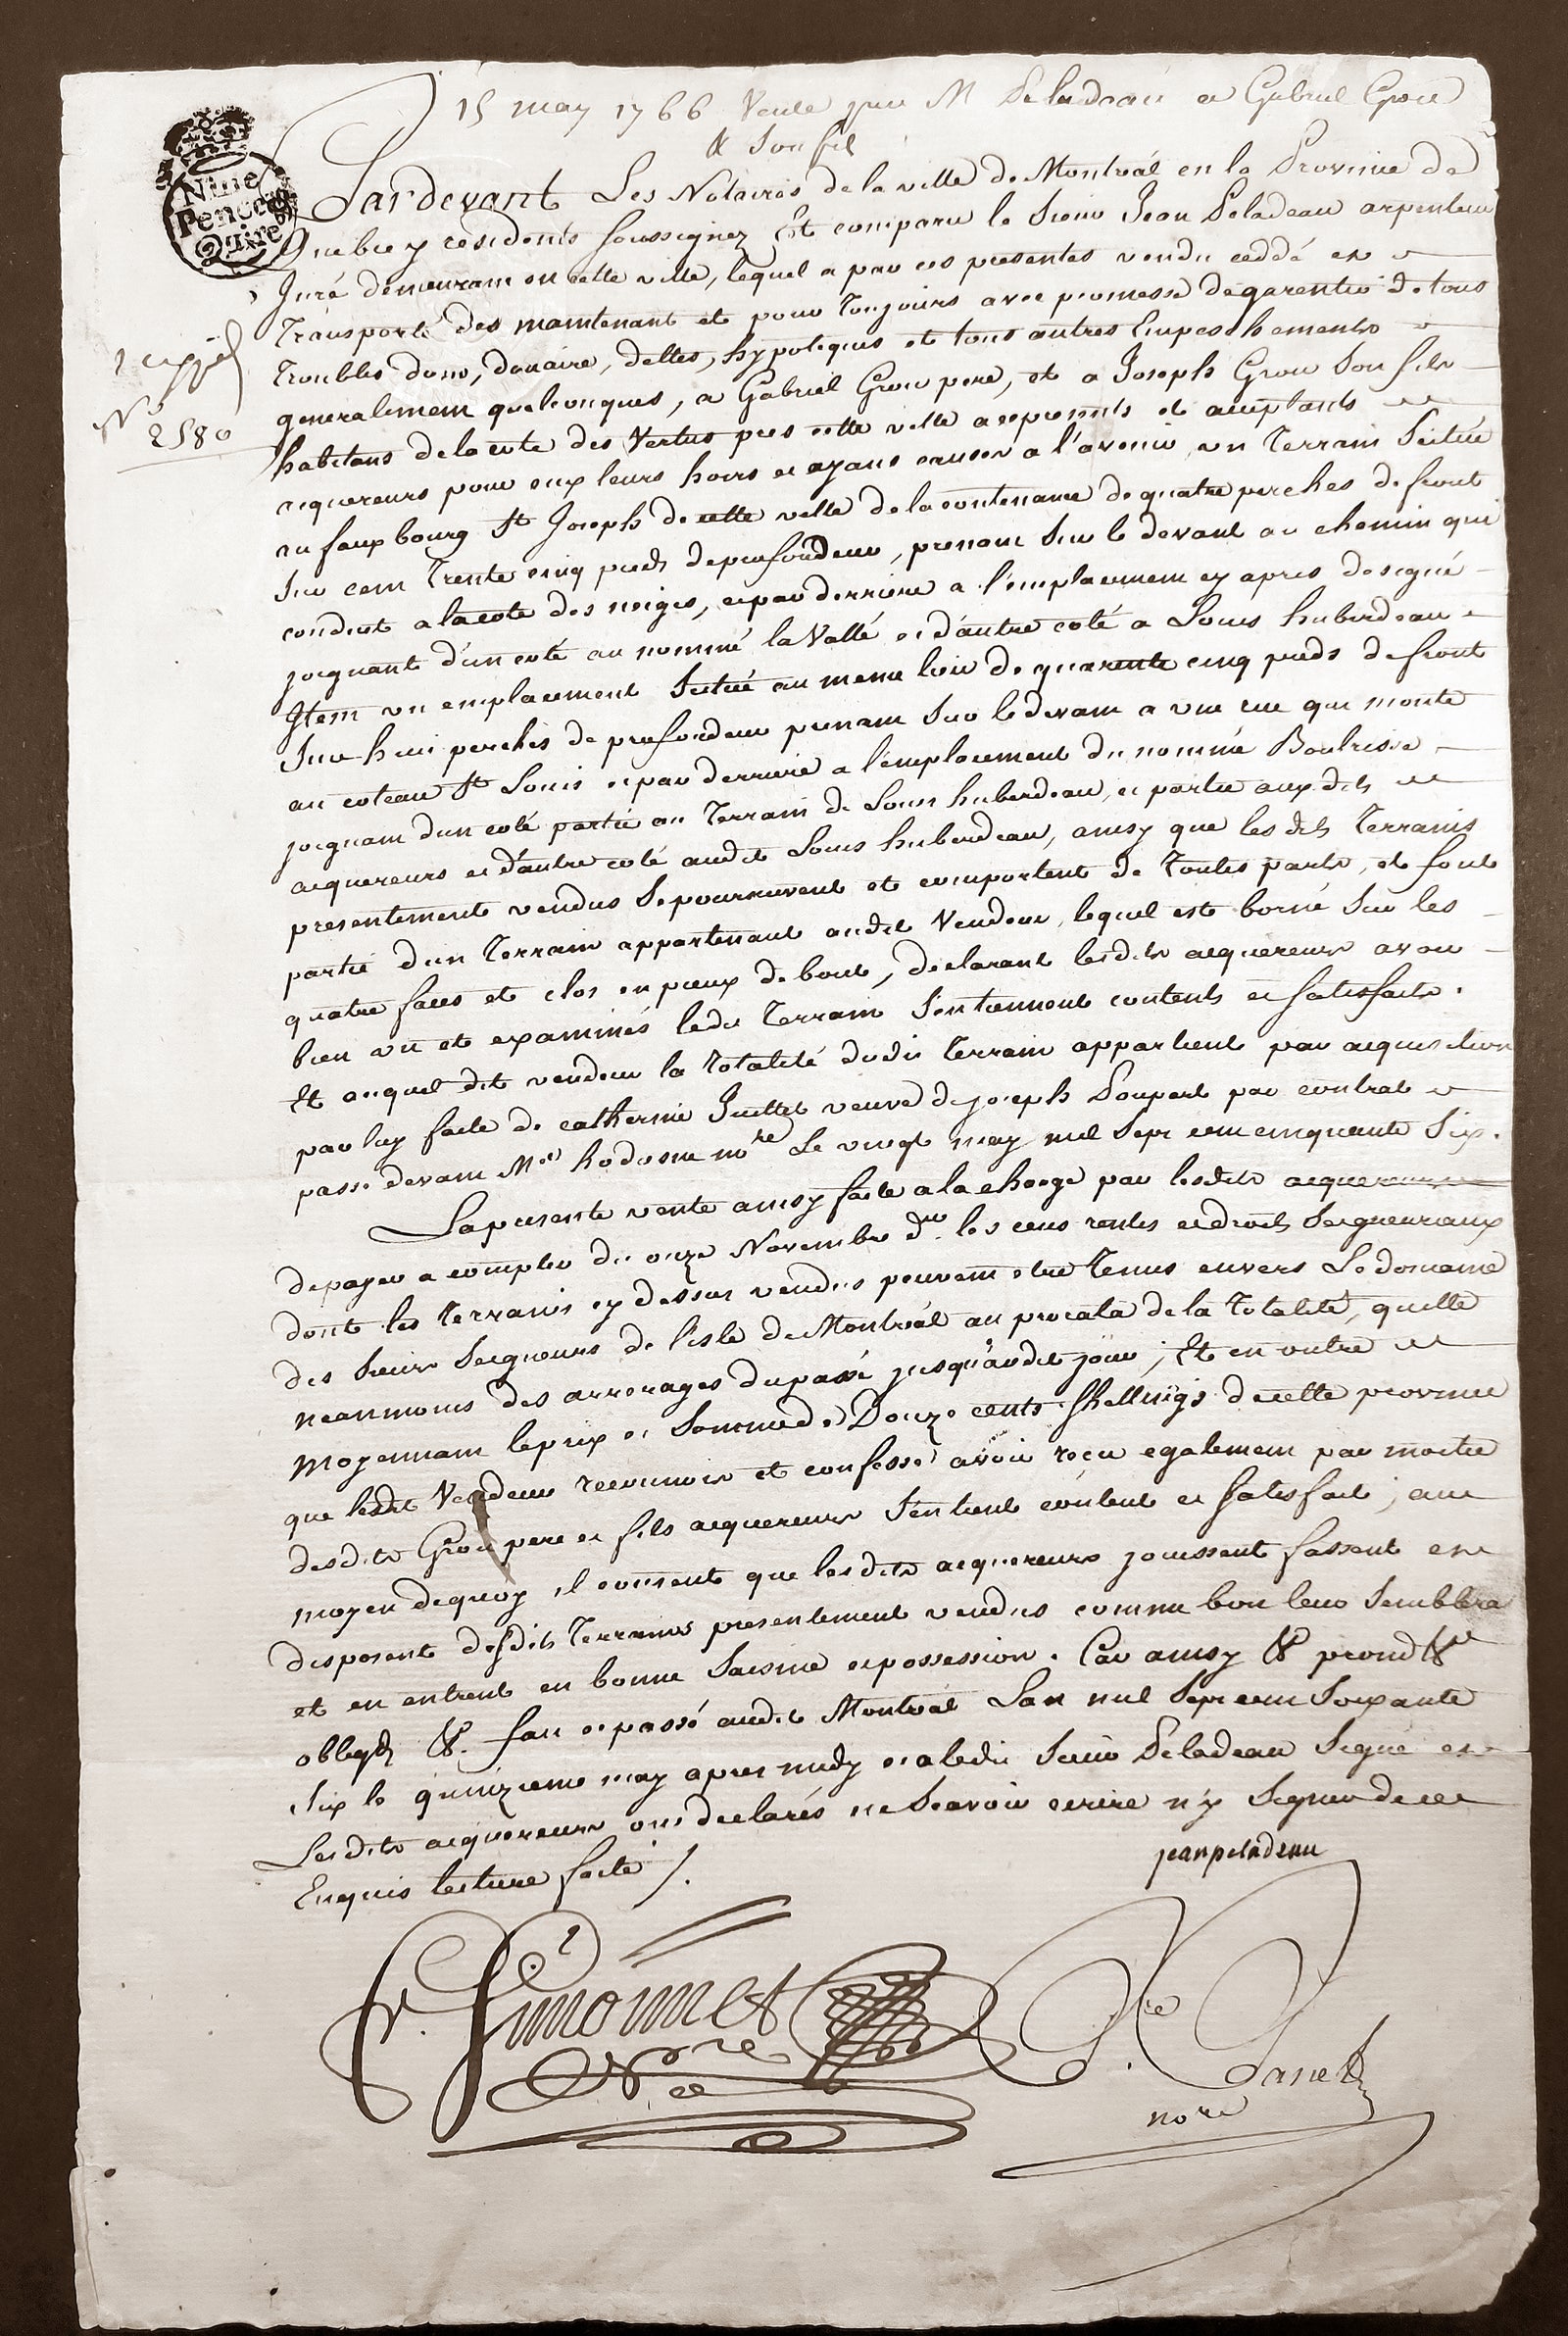 15 may 1766 Vente par M Peladeau a Gabriel Grou
& son fil
Nine
Pence
Pardevant Les Notaires de la ville de Montreal en la Province de
Quebec y residents soussignez Est comparu le Sieur Jean Peladeau arpenteur
Juré demeurant en cette ville, lequel a par ces presentes vendu ceddé et
Transporté des maintenant et pour Toujours avec promesse de garentie de tous
Troubles dons, douaire, dettes, hypoteques et tous autres Empeschements
1 exped
generalement quelconques, a Gabriel Grou pere, et a Joseph Grou son fils
No
2580
habitans de la cote des Vertus pres cette ville a ce presents et acceptants
acquereurs pour eux leurs hoirs et ayans causes a l'avenir, un Terrain Scitué
au faux bourg St Joseph de cette ville de la contenance de quatre perches de front
sur cent Trente cinq pieds de profondeur, prenant sur le devant au chemin qui
conduit a la cote des neiges, et par derriere a l'emplacement cy apres designé
joignant d'un coté au nommé la Vallé et d'autre coté a Louis huberdeau
Item un emplacement Scitué au meme lieu de quarente cinq pieds de front
sur huit perches de profondeur prenant sur le devant a une rue qui monte
au coteau St Louis et par derriere a l'emplacement du nommé Boutrisse
joignant d'un coté partie au Terrain de Louis huberdeau, et partie aux dits
acquereurs et d'autre coté audit Louis huberdeau, ainsy que les dits Terrains
presentement vendus se poursuivent et comportent de Toutes parts, et font
partie d'un Terrain appartenant audit Vendeur, lequel est borné sur les
quatre faces et clos en pieux de bout, declarant lesdits acquereurs avoir
bien vu et examinés ledit Terrain s'en tiennent contents et satisfaits.
Et auquel dit vendeur la Totalité dudit Terrain appartient par acquisition
par luy faite de catherine Juillet veuve de joseph Loupart par contrat
passé devant Me hodiesne nore Le vingt may mil sept cent cinquante six.
La presente vente ainsy faite a la charge par lesdits acquereurs
de payer a compter du onze Novembre der les cens rentes et droits Seigneuriaux
dont les Terrains cy dessus vendus peuvent etre Tenus envers Le domaine
des Sieurs Seigneurs de l'isle de Montréal au procata de la Totalité, quitte
neanmoins des arrerages du passé jusqu'audit jour; Et en outre
moyennant le prix et Somme de Douze cents Shellings de cette province
que ledit Vendeur reconnoist et confesse avoir reçu egalement par moitié
desdits Grou pere et fils acquereurs s'en tient content et satisfait; au
moyen de quoy il consent que lesdits acquereurs jouissent fassent et
disposent desdits Terrains presentement vendus comme bon leur semblera
et en entrent en bonne Saisine et possession. Car ainsy &ca promett
obligt &. fait et passé audit Montréal Lan mil sept cent Soixante
six le quinzieme may apres midy et a ledit Sieur Peladeau Signé et
Lesdits acquereurs ont declarés ne Scavoir ecrire n'y Signer de ce
Enquis lecture faite /.
jean peladeau
fr. Simonnet
Nore
Pre Panet
nore